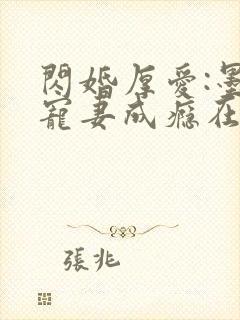 閃婚厚愛:墨
寵妻成癮在
張兆